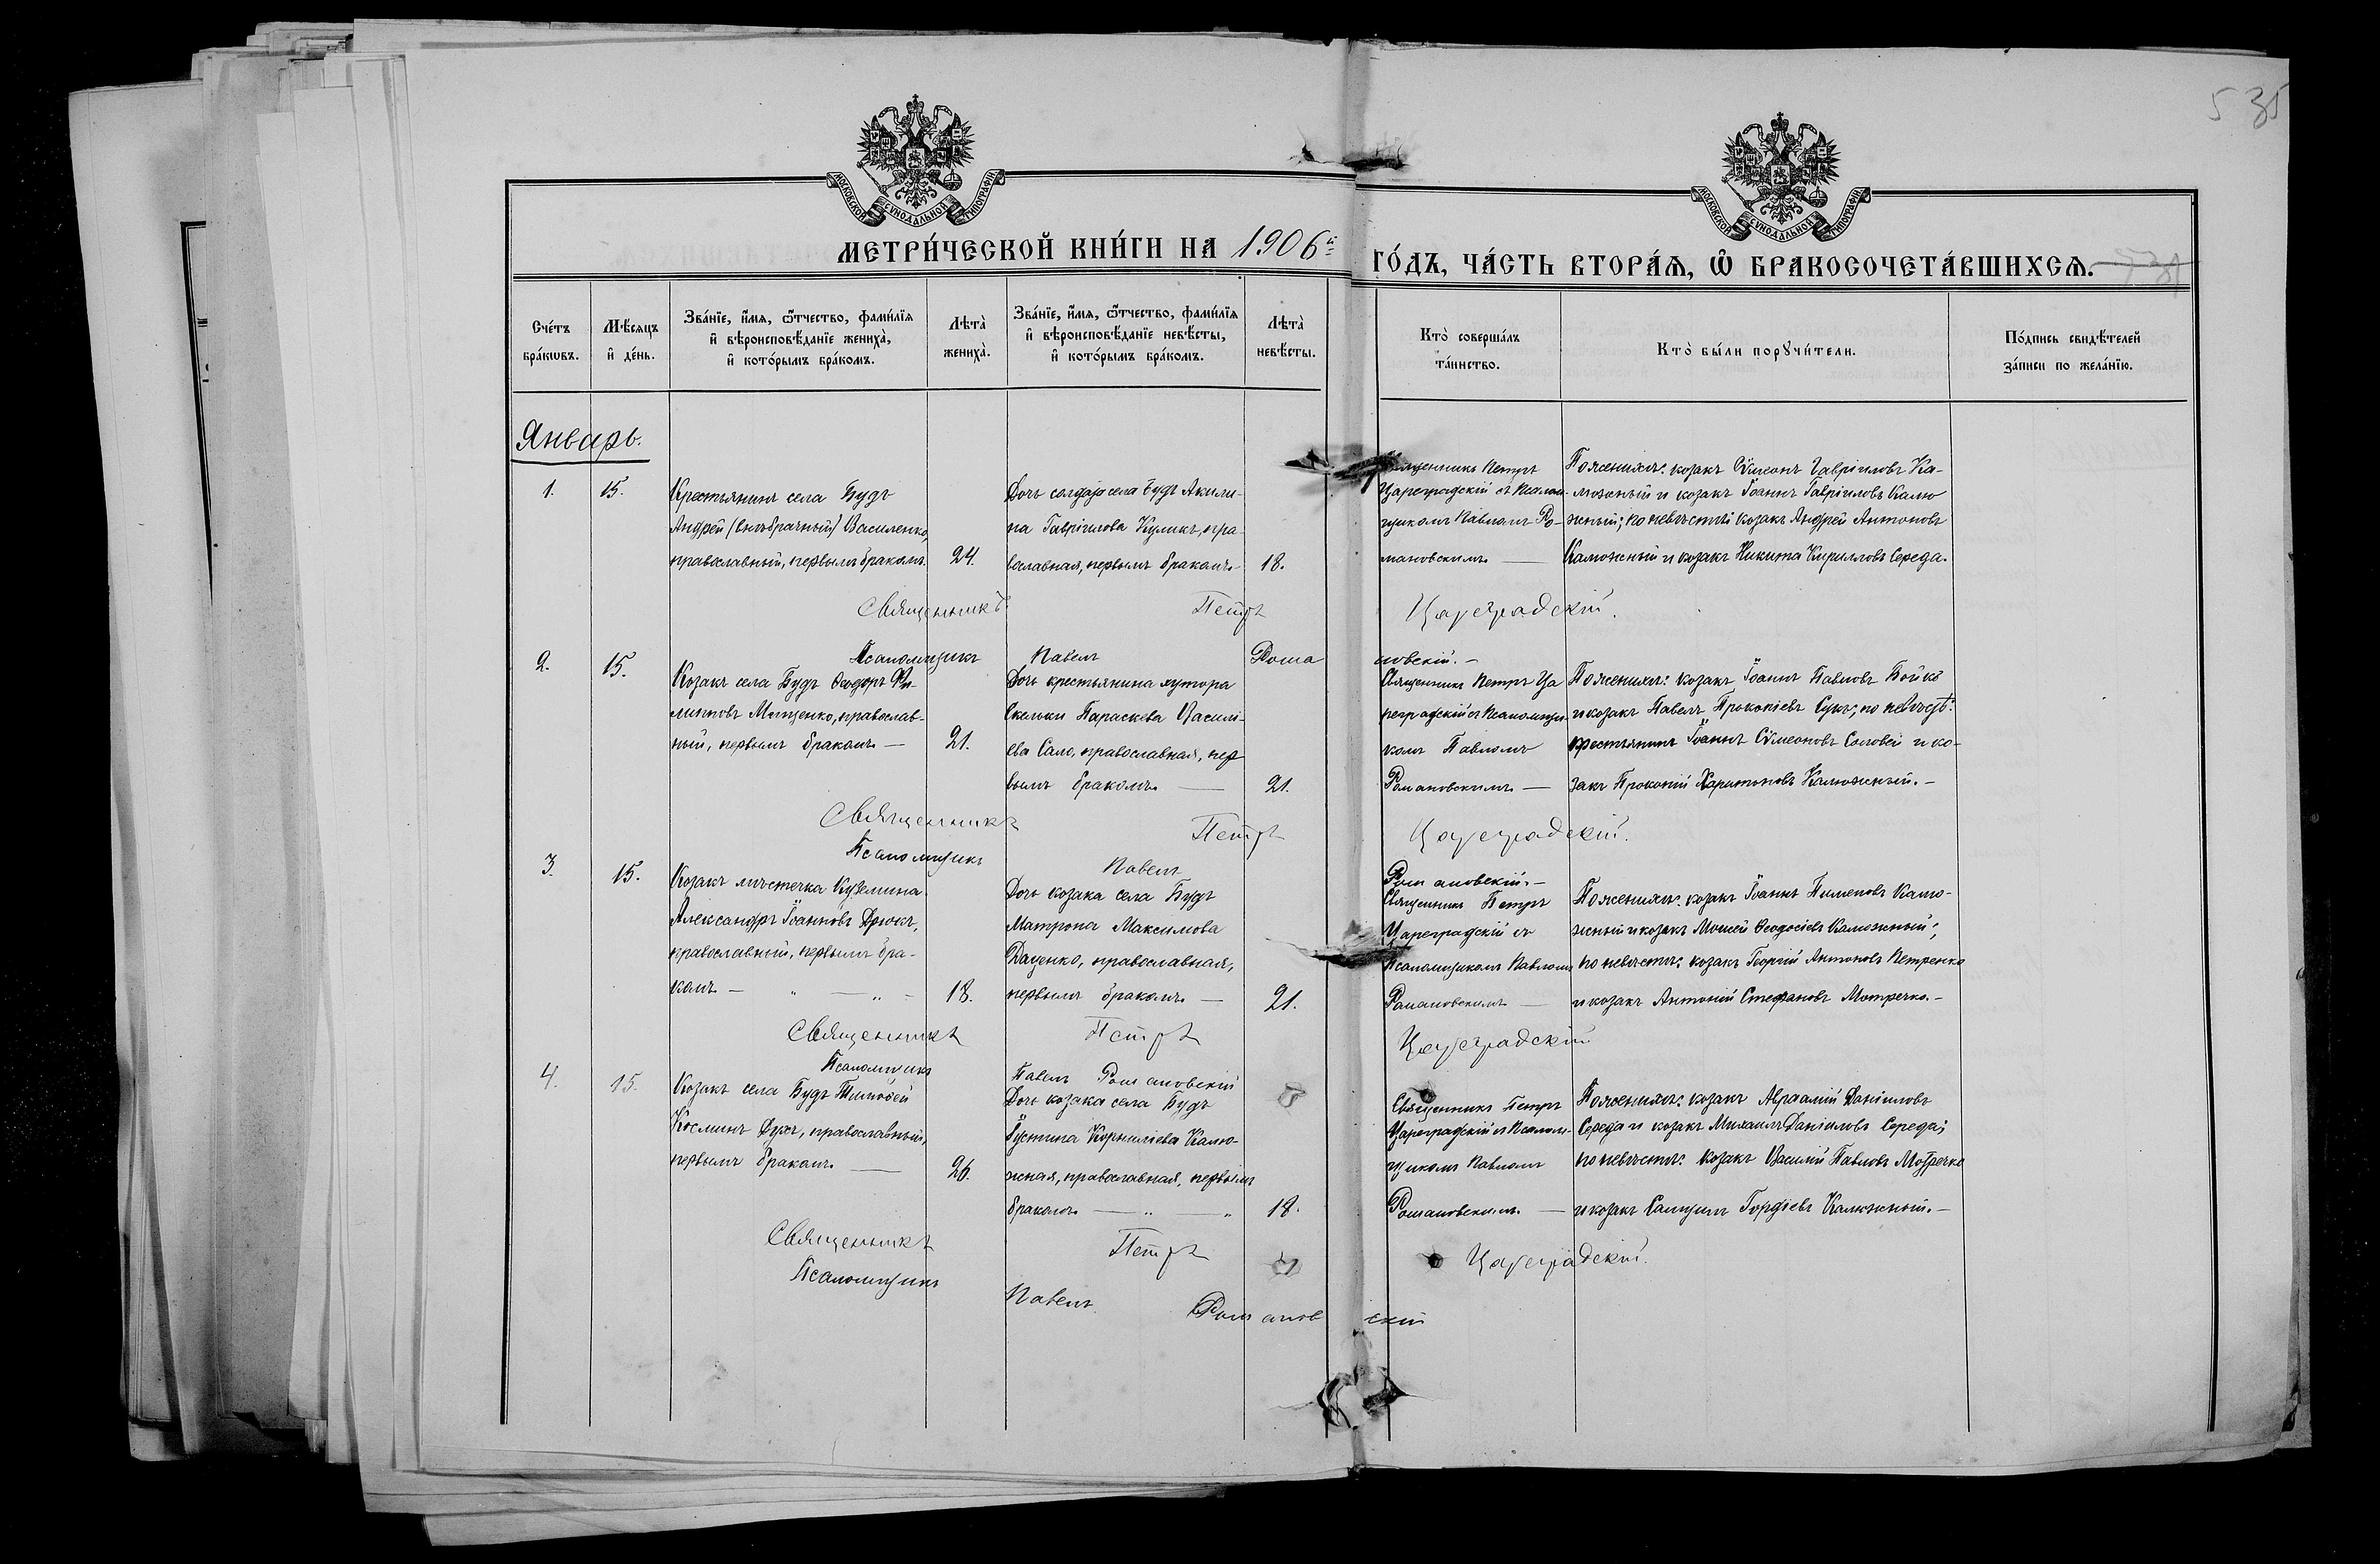 535
МОСКОВСКОЙ СУНОДАЛЬНОЙ ТИПОГРАФІИ
МОСКОВСКОЙ СУНОДАЛЬНОЙ ТИПОГРАФІИ
МЕТРИ́ЧЕСКОЙ КНИ́ГИ НА 1906й ГО́ДЪ, ЧА́СТЬ ВТОРА́Я, Ѡ БРАКОСОЧЕТА́ВШИХСЯ.
Сче́тъ бра́кѡвъ.
Мѣ́сяцъ и де́нь.
Зва́нїе, и́мя, ѿчество, фами́лїя и вѣроисповѣ́данїе жениха̀, и кото́рымъ бра́комъ.
Лѣта̀ жениха̀.
Зва́нїе, и́мя, ѿчество, фами́лїя и вѣроисповѣ́данїе невѣ́сты, и кото́рымъ бра́комъ.
Лѣта̀ невѣ́сты.
Кто̀ соверша́лъ та́инство.
Кто̀ бы́ли порꙋчи́тели.
По́дпись свидѣ́телей за́писи по жела́нїю.
Январь.
1.
15.
Крестьянинъ села Будъ
Андрей (внѣбрачный) Василенко,
православный, первымъ бракомъ.
24.
Дочь солдата села Будъ Акили-
на Гавріилова Куликъ, пра-
вославная, первымъ бракомъ.-
18.
Священникъ Петръ
Цареградскій съ Псалом-
щикомъ Павломъ Ро-
мановскимъ. —
По женихѣ: козакъ Сѵмеонъ Гавріиловъ Ка-
мюжный и козакъ Іоаннъ Гавріиловъ Калю
жный; по невѣстѣ: козакъ Андрей Антоновъ
Калюжный и козакъ Никита Кирилловъ Середа.
Священникъ Петръ Цареградскій.
Псаломщикъ Павелъ Романовскій.-
2.
15.
Козакъ села Будъ Ѳеодоръ Фи-
липповъ Мощенко, православ-
ный, первымъ бракомъ. —
21.
Дочь крестьянина хутора
Скельки Параскева Василі-
ева Сало, православная, пер
вымъ бракомъ. —
21.
Священникъ Петръ Ца
реградскій съ Псаломщи-
комъ Павломъ
Романовскимъ. —
По женихѣ: козакъ Іоаннъ Павловъ Бойко
и козакъ Павелъ Прокопіевъ Сукъ; по невѣстѣ:
крестьянинъ Іоаннъ Сѵмеоновъ Соловей и ко-
закъ Прокопій Харитоновъ Калюжный.-
Священникъ Петръ Цареградскій.
Псаломщикъ Павелъ Романовскій.-
3.
15.
Козакъ мѣстечка Куземина
Александръ Іоанновъ Дрюкъ,
православный, первымъ бра-
комъ — „ — „ -
18.
Дочь козака села Будъ
Матрона Максимова
Даценко, православная,
первымъ бракомъ. —
21.
Священникъ Петръ
Цареградскій съ
Псаломщикомъ Павломъ
Романовскимъ —
По женихѣ: козакъ Іоаннъ Пименовъ Калю-
жный и козакъ Моисей Ѳеодосіевъ Калюжный;
по невѣстѣ: козакъ Георгій Антоновъ Петренко
и козакъ Антоній Стефановъ Мотречко.-
Священникъ Петръ Цареградскій
Псаломщикъ Павелъ Романовскій
4.
15.
Козакъ села Будъ Тимоѳей
Косминъ Духъ, православный,
первымъ бракомъ. —
26.
Дочь козака села Будъ
Іустина Корниліева Калю-
жная, православная, первымъ
бракомъ. — „ — „
18.
Священникъ Петръ
Цареградскій съ Псалом-
щикомъ Павломъ
Романовскимъ. —
По женихѣ: козакъ Авраамій Даніиловъ
Середа и козакъ Михаилъ Даніиловъ Середа;
по невѣстѣ: козакъ Василій Павловъ Мотречко
и козакъ Самуилъ Гордіевъ Калюжный.-
Священникъ Петръ Цареградскій.
Псаломщикъ Павелъ Романовскій